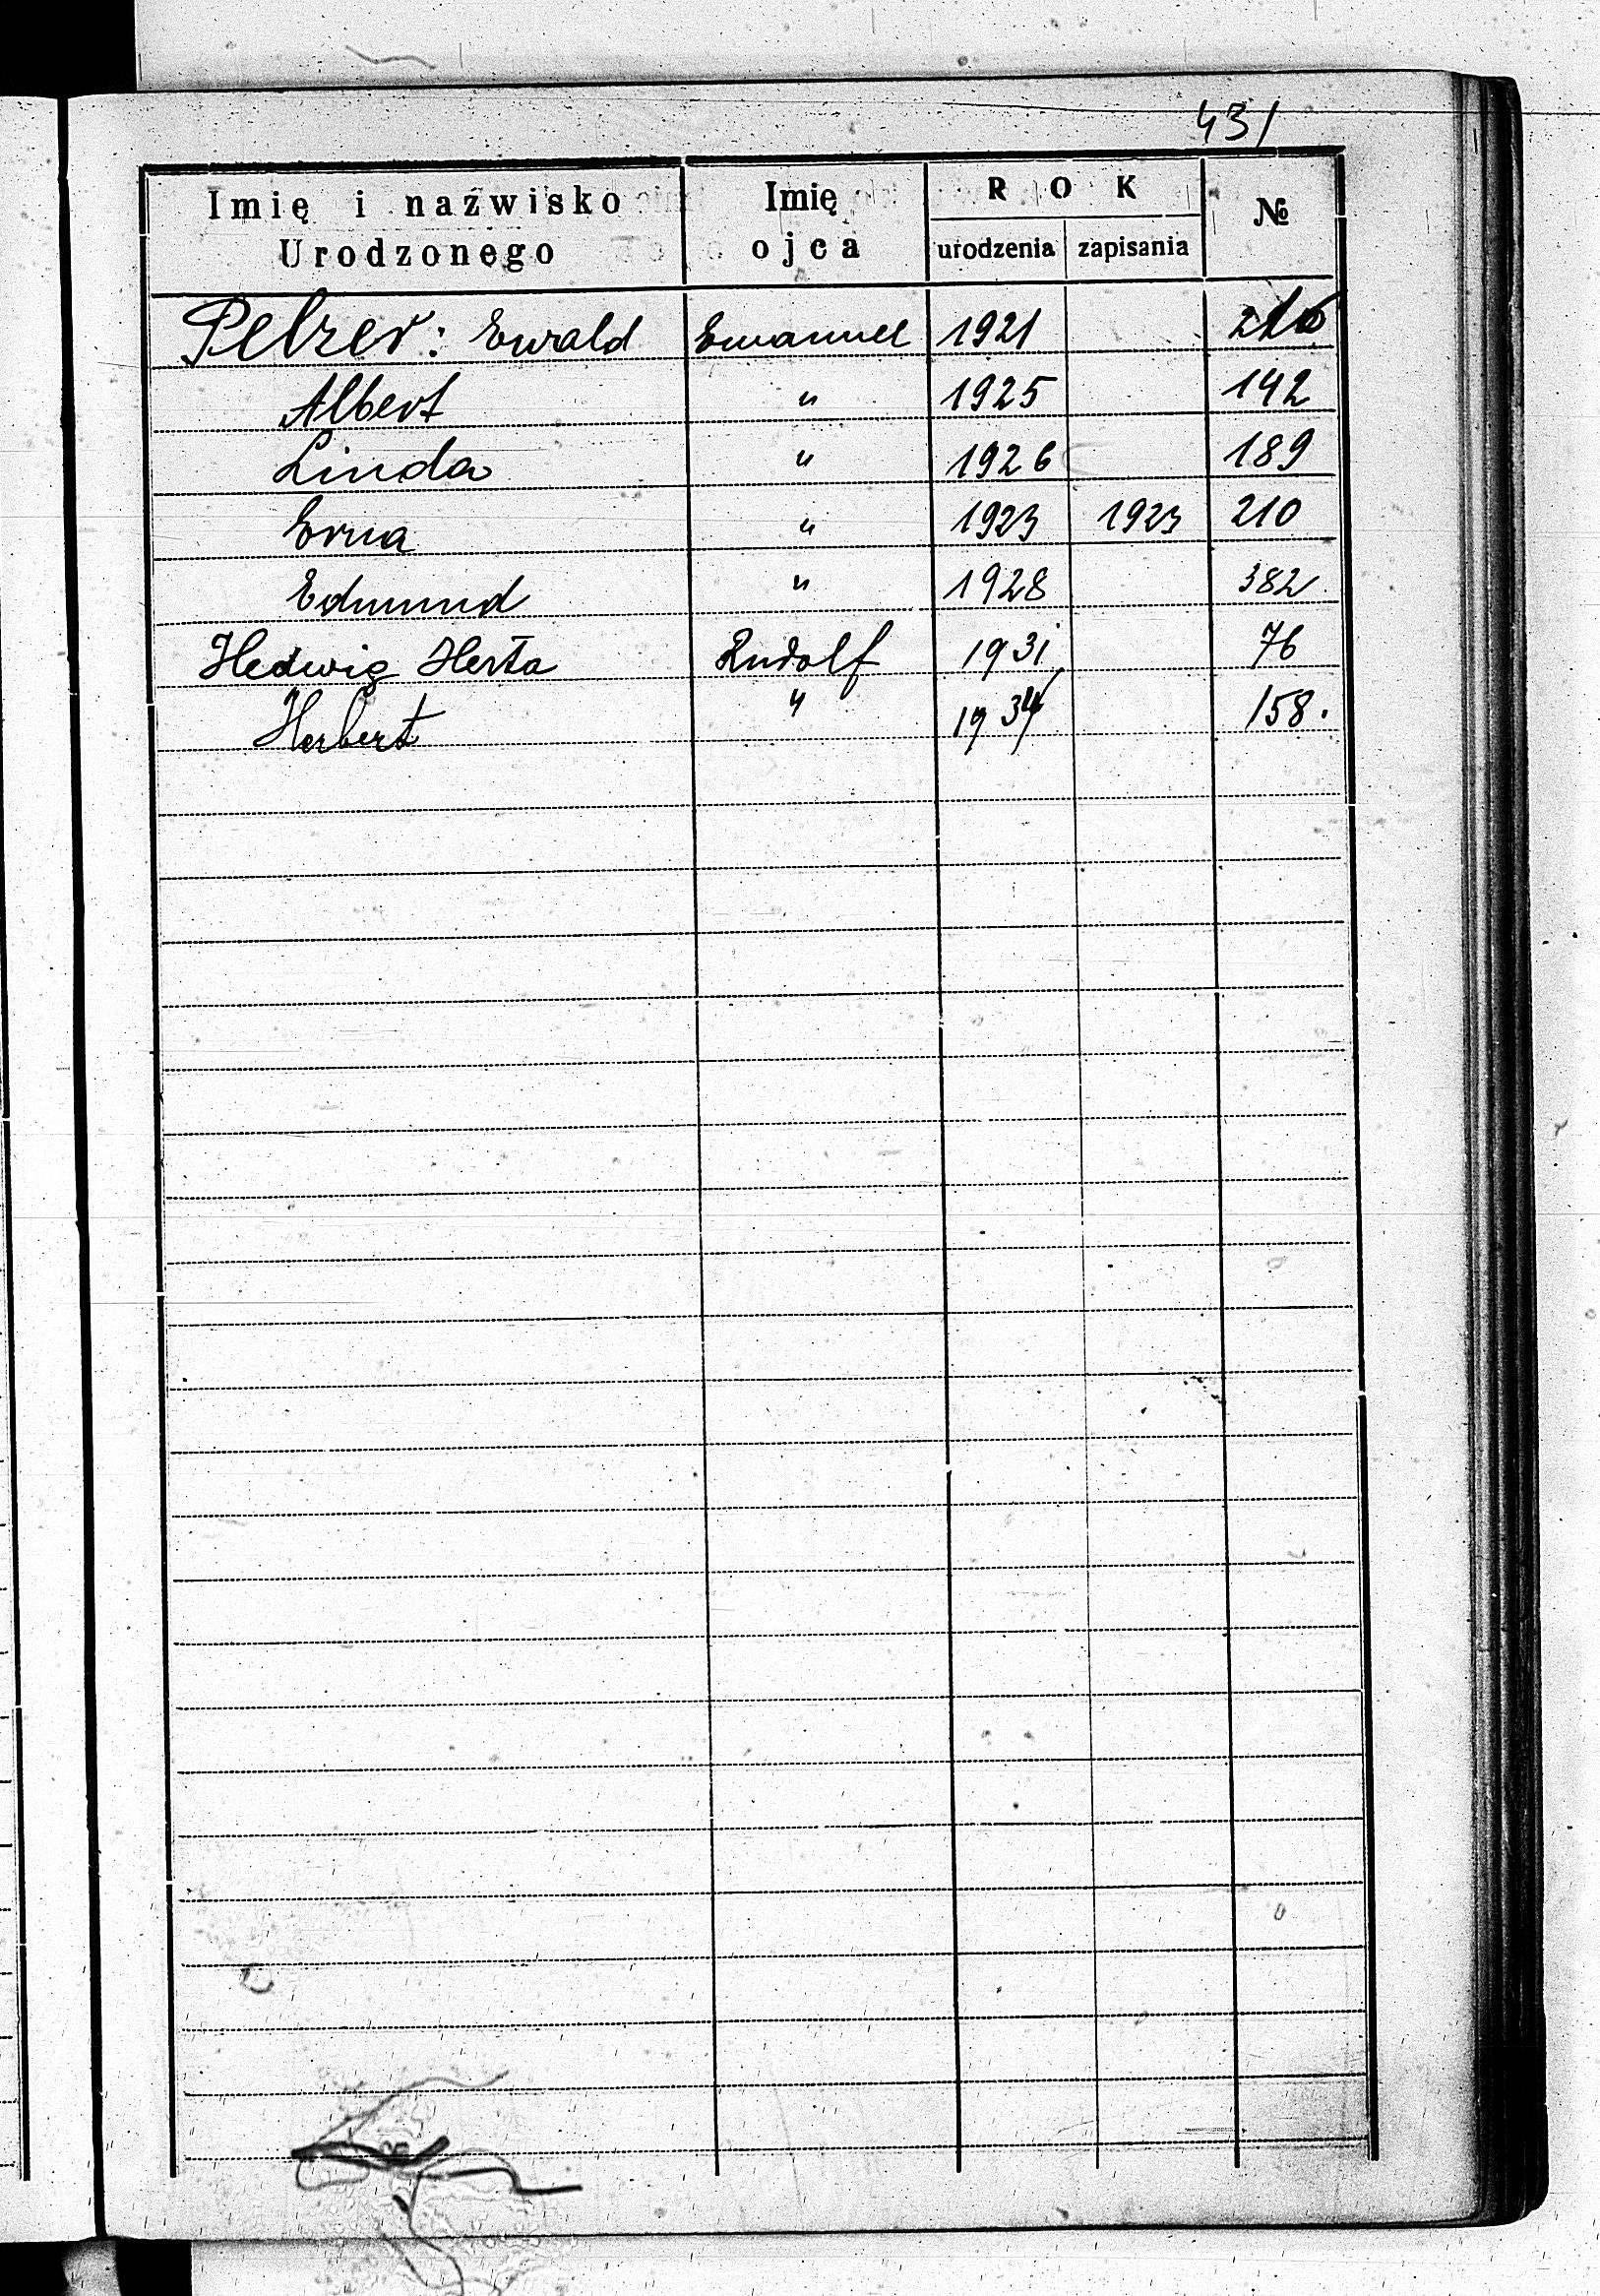 431
Imię i nazwisko Urodzonego Imię ojca ROK urodzenia zapisania №
Pelzer: Ewald Emanuel 1921
Albert " 1925 142
Linda " 1926 189
Erna " 1923 1923 210
Edmund " 1928 382
Hedwig Herta Rudolf 1931 76
Herbert " 1934 158.